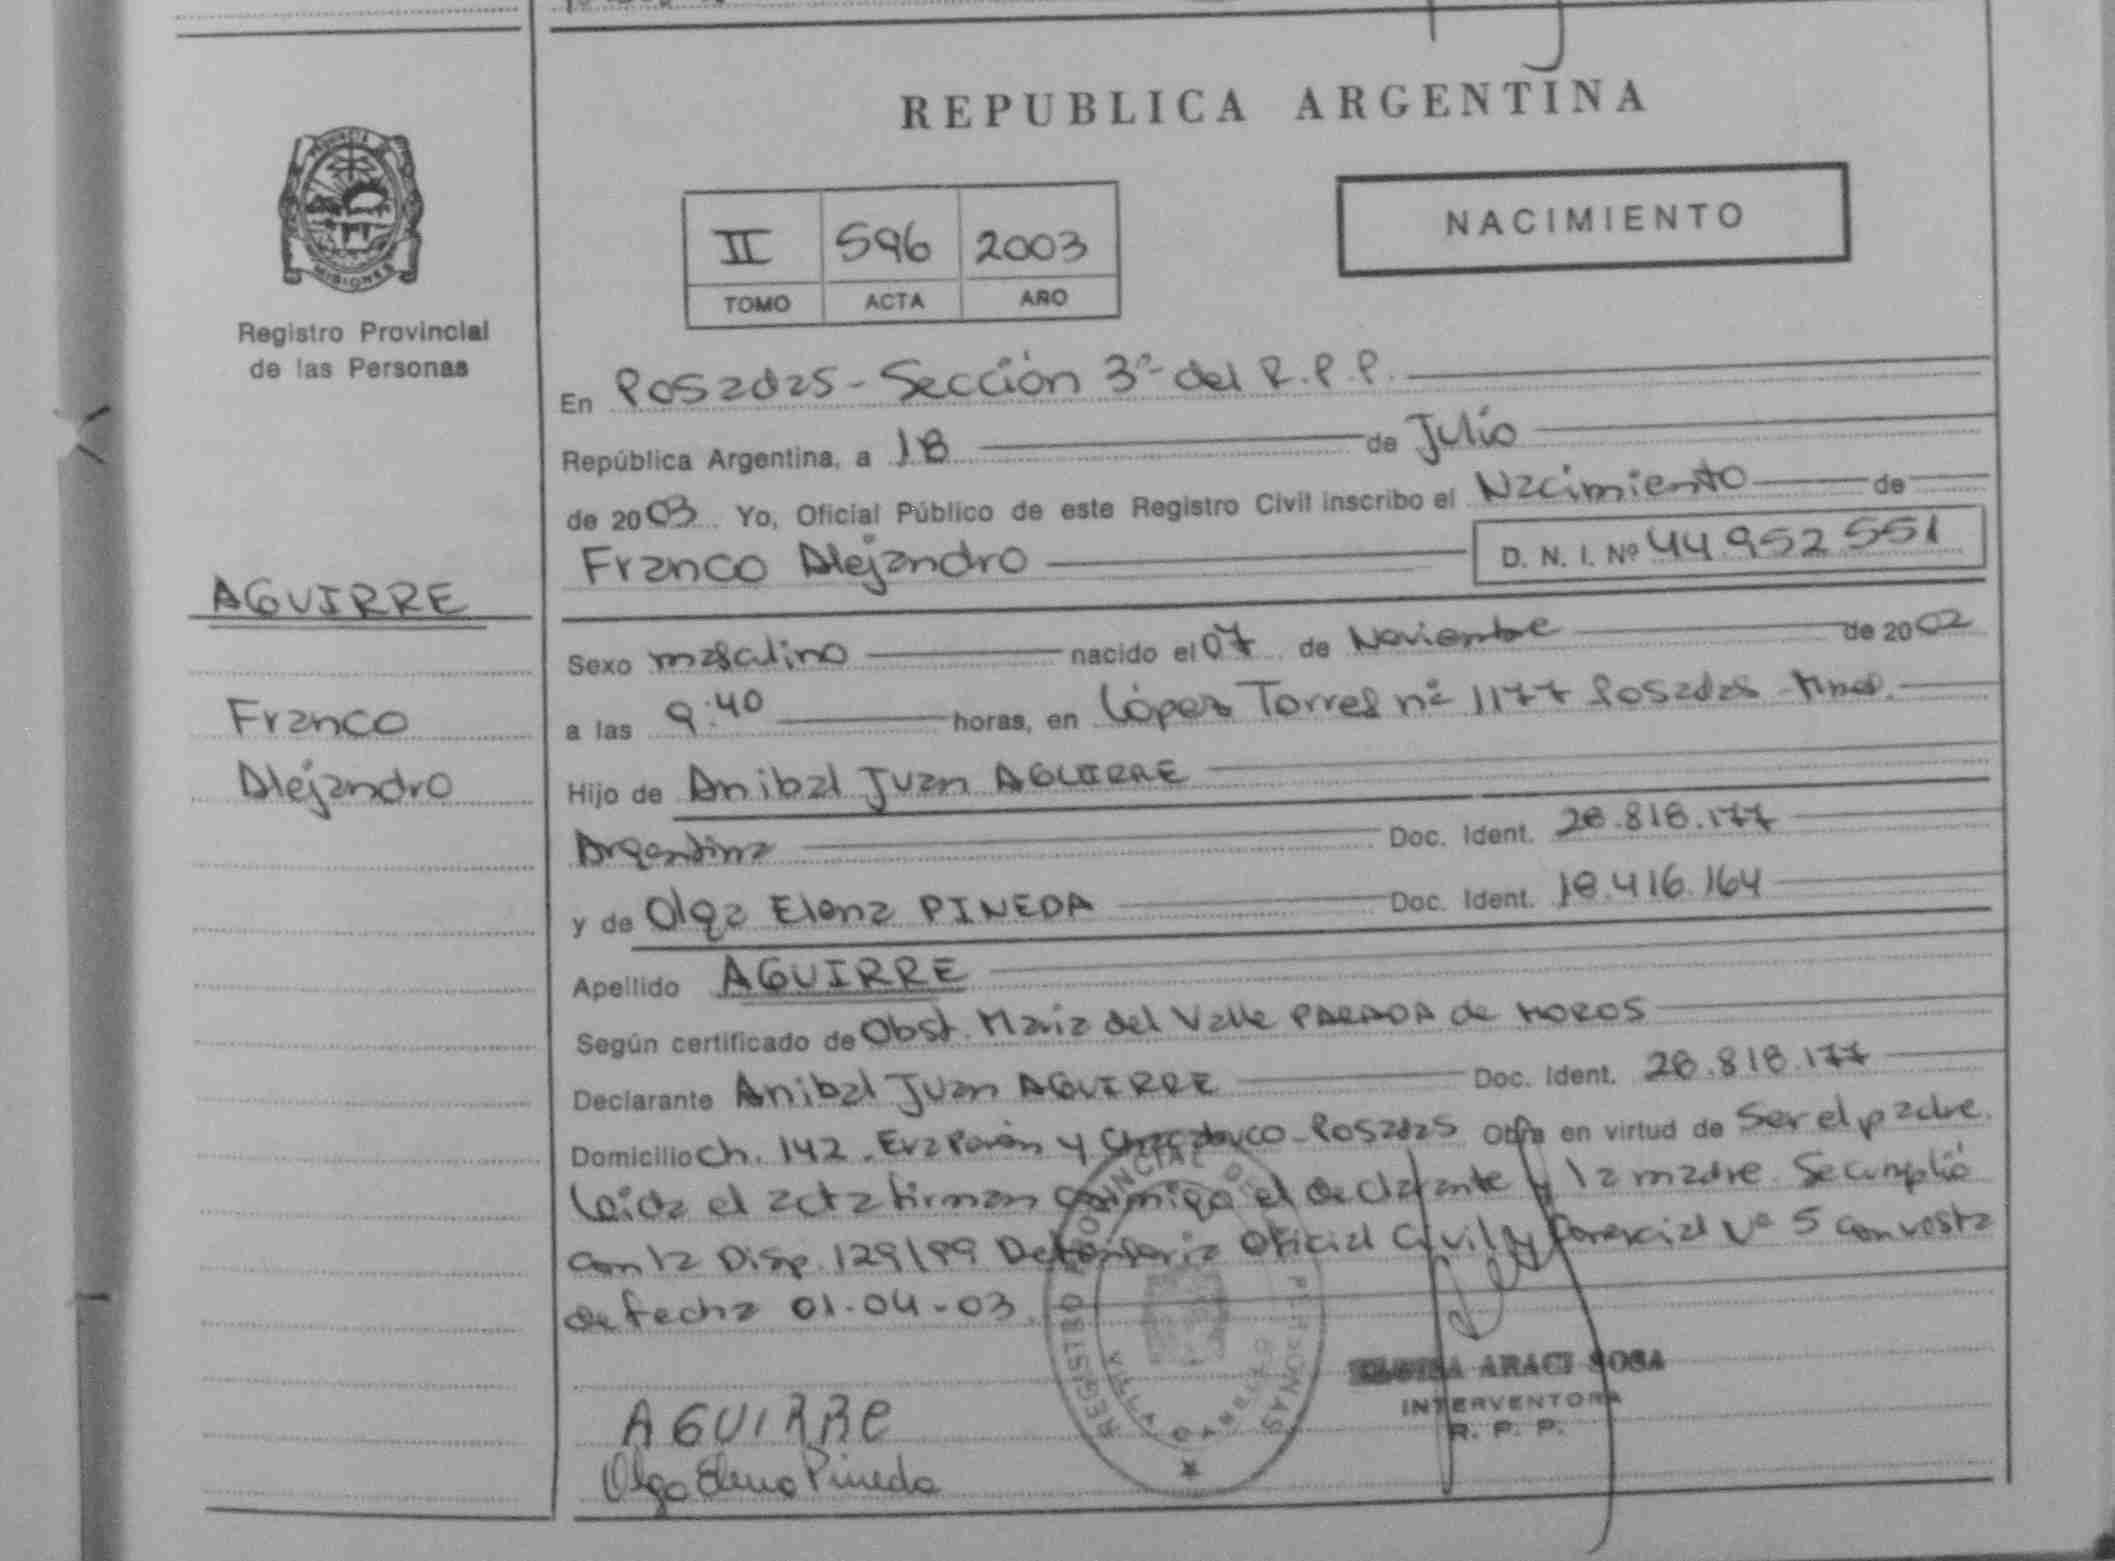 REPUBLICA ARGENTINA
NACIMIENTO
II 596 2003
TOMO ACTA AÑO
PROVINCIA
MISIONES
Registro Provincial
de las Personas
AGUIRRE
Franco
Alejandro
En Posadas - Sección 3ª del R.P.P.
República Argentina, a 18 de Julio
de 2003 Yo, Oficial Público de este Registro Civil inscribo el Nacimiento de
Franco Alejandro D. N. I. Nº 44.952.551
Sexo masculino nacido el 07 de Noviembre de 2002
a las 9:40 horas, en López Torres nº 1177 Posadas - Mnes.
Hijo de Anibal Juan AGUIRRE
Argentina Doc. Ident. 28.818.177
y de Olga Elena PINEDA Doc. Ident. 18.416.164
Apellido AGUIRRE
Según certificado de Obst. Maria del Valle PARADA de MOROS
Declarante Anibal Juan AGUIRRE Doc. Ident. 28.818.177
Domicilio Ch. 142 - Eva Perón y Chacabuco - Posadas Obra en virtud de Ser el padre.
Leida el acta firman conmigo el declarante y la madre. Se cumplió
con la Disp. 129/99 Defensoria Oficial Civil y Comercial Nº 5 con vista
de fecha 01-04-03.
AGUIRRE
Olga Elena Pineda
REGISTRO PROVINCIAL DE PERSONAS
ARACI SOSA
INTERVENTORA
R. P. P.